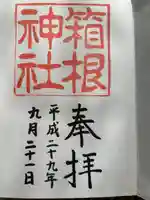 箱根
神社
奉拝
平成二十九年
九月二十一日